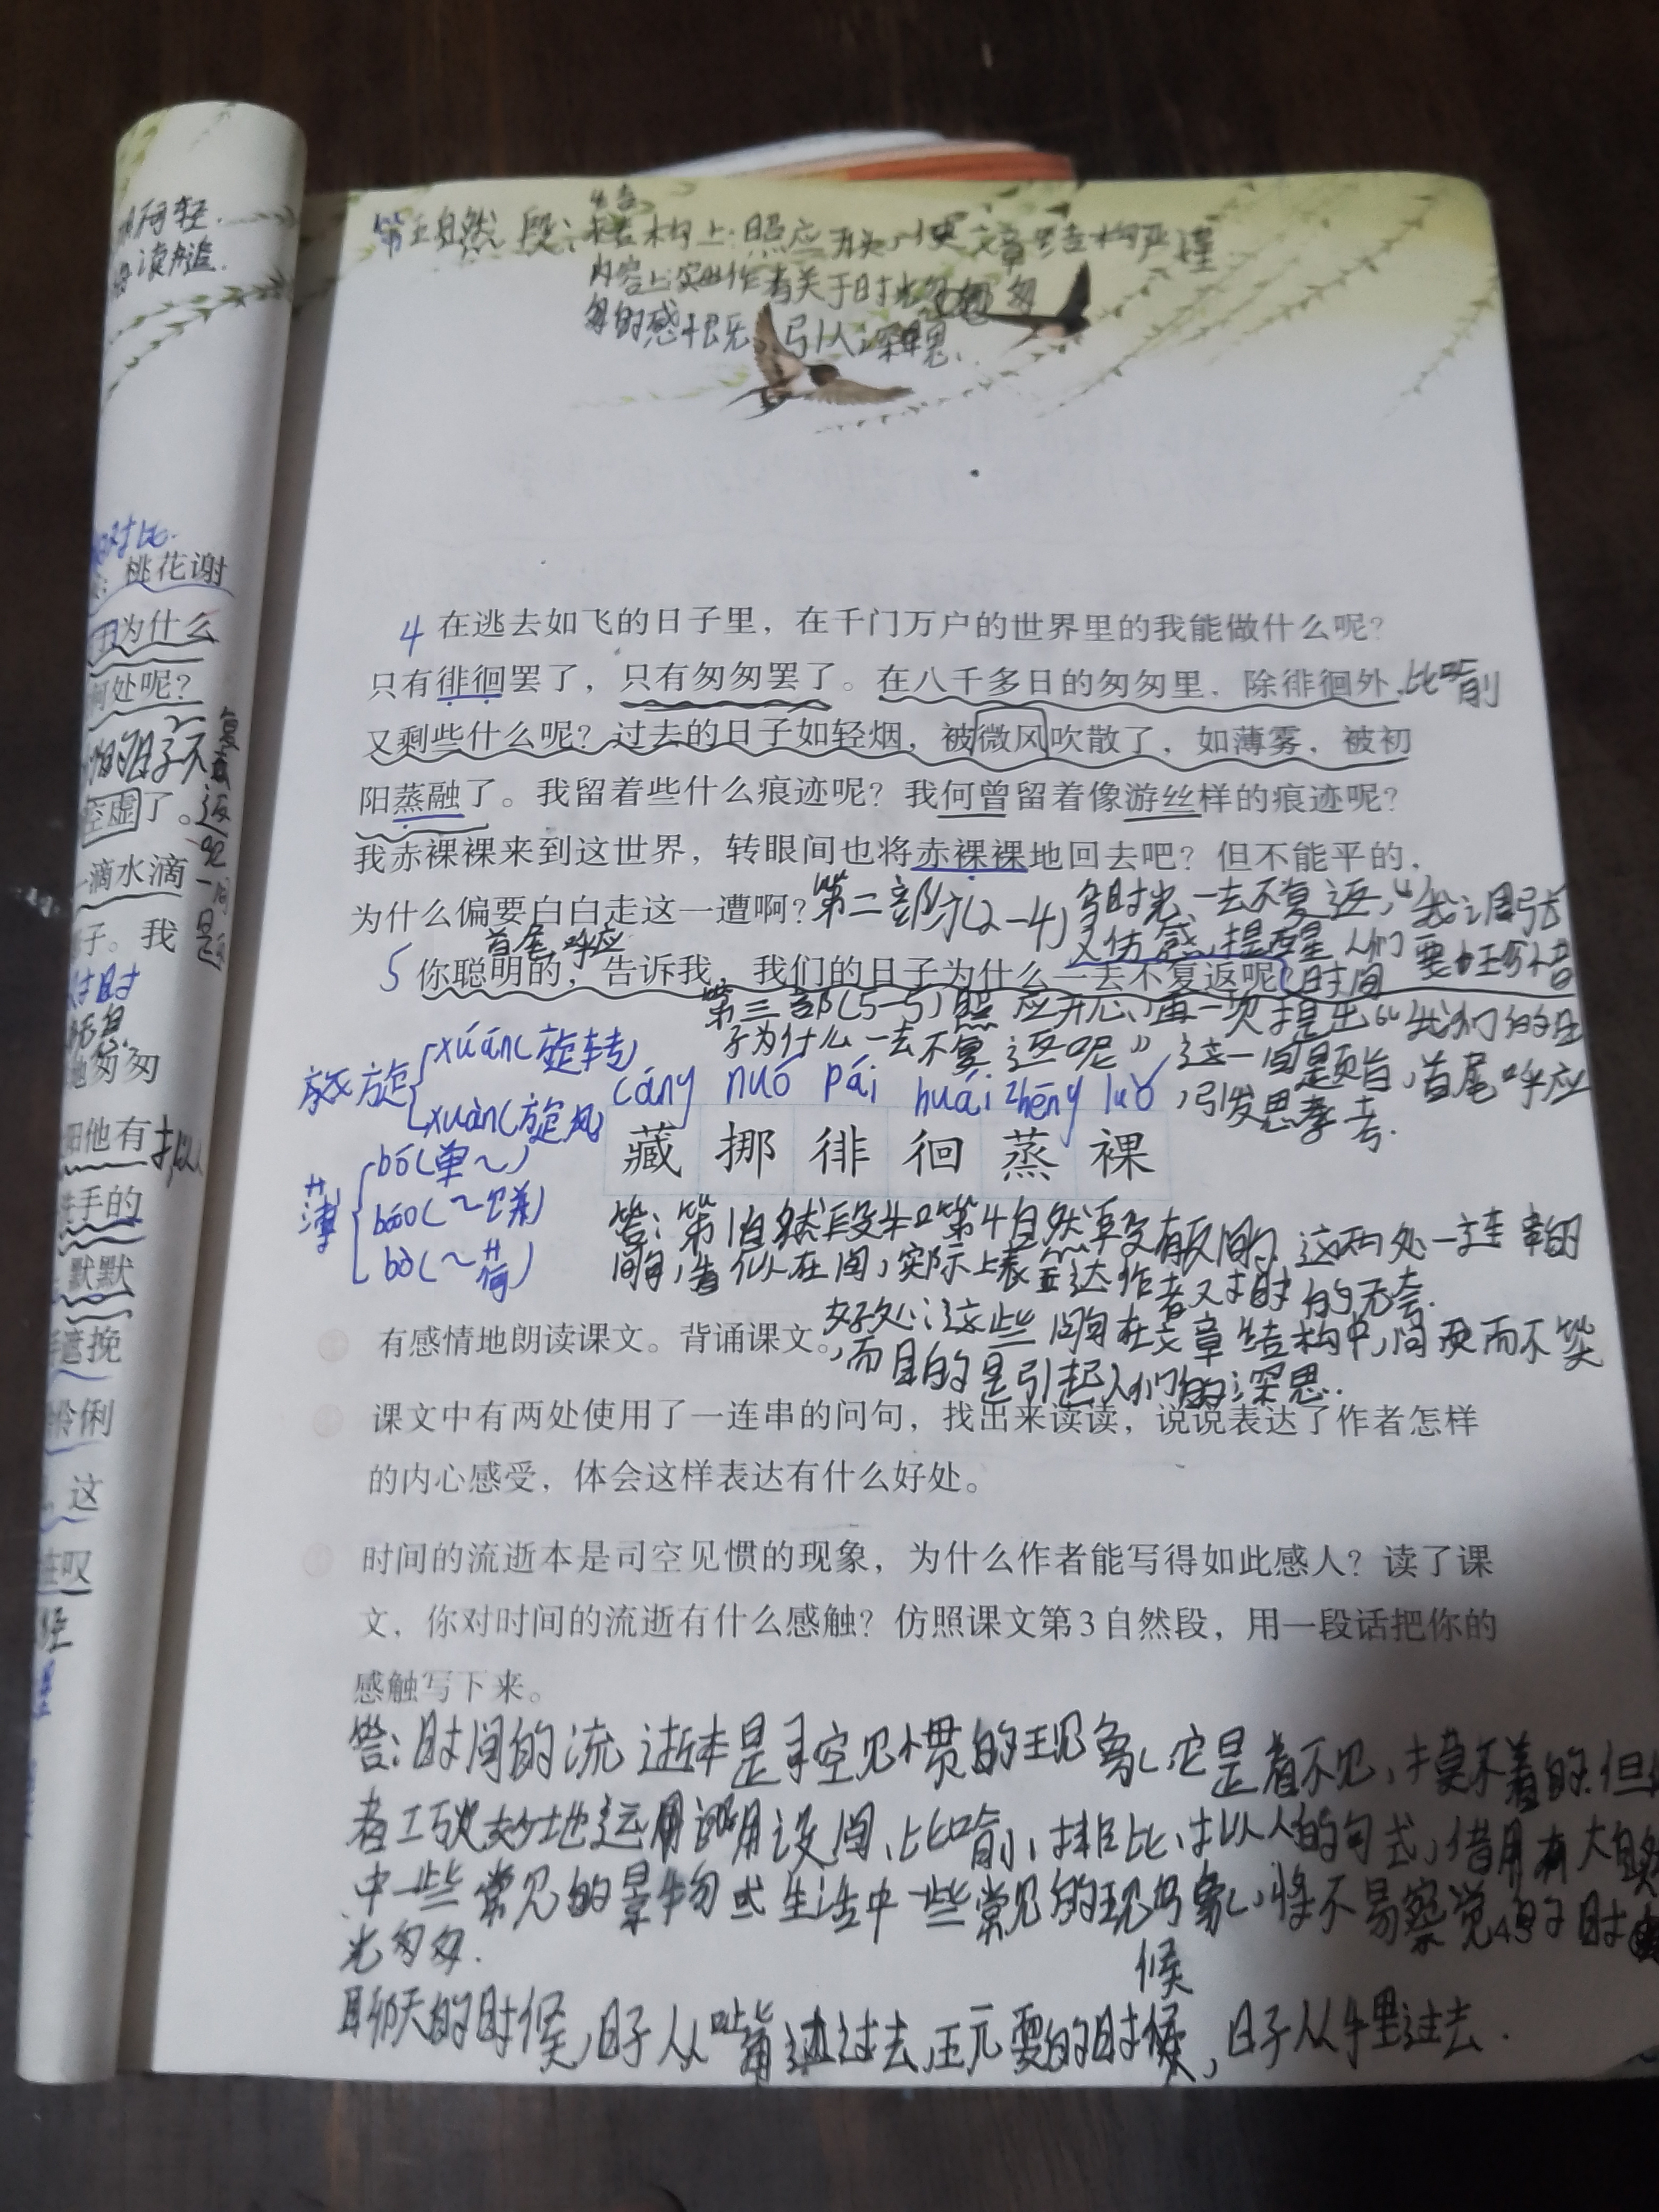 第五自然段:结构上:照应开头,使文章结构严谨
内容上突出作者关于时光匆匆
匆的感
引人深思.
4 在逃去如飞的日子里，在千门万户的世界里的我能做什么呢？
只有徘徊罢了，只有匆匆罢了。在八千多日的匆匆里，除徘徊外，比喻
又剩些什么呢？过去的日子如轻烟，被微风吹散了，如薄雾，被初
阳蒸融了。我留着些什么痕迹呢？我何曾留着像游丝样的痕迹呢？
我赤裸裸来到这世界，转眼间也将赤裸裸地回去吧？但不能平的，
为什么偏要白白走这一遭啊？第二部分(2-4)
时光一去不复返,
又伤感,提醒人们要
时间
首尾呼应
5 你聪明的，告诉我，我们的日子为什么一去不复返呢？
第三部(5-5)照应开心,再一次提出“我们的日
子为什么一去不复返呢”这一问题旨,首尾呼应
,引发思考.
旋
xuán(旋转)
xuàn(旋风)
cáng nuó pái huái zhēng luǒ
藏 挪 徘 徊 蒸 裸
薄
bó(单～)
báo(～饼)
bò(～荷)
答:第1自然段和第4自然段有反问的,这两处一连串的
问句,看似在问,实际上表达作者对时的无奈.
好处:这些问句在文章结构中,问而不答
,而目的是引起人们的深思.
有感情地朗读课文。背诵课文。
课文中有两处使用了一连串的问句，找出来读读，说说表达了作者怎样
的内心感受，体会这样表达有什么好处。
时间的流逝本是司空见惯的现象，为什么作者能写得如此感人？读了课
文，你对时间的流逝有什么感触？仿照课文第3自然段，用一段话把你的
感触写下来。
答:时间的流逝本是司空见惯的现象,它是看不见,摸不着的.但
者巧妙地运用设问、比喻、排比、拟人的句式,借用大自然
中一些常见的景物或生活中一些常见的现象,将不易察觉的时
光匆匆.
45
聊天的时候,日子从嘴边过去,玩耍的时候,日子从手里过去.
读
对比.
桃花谢
为什么
何处呢？
的日子不
空虚了。
一滴水滴
子。我
地匆匆
阳他有
拟人
洗手的
默默
遮挽
伶俐
，这
叹